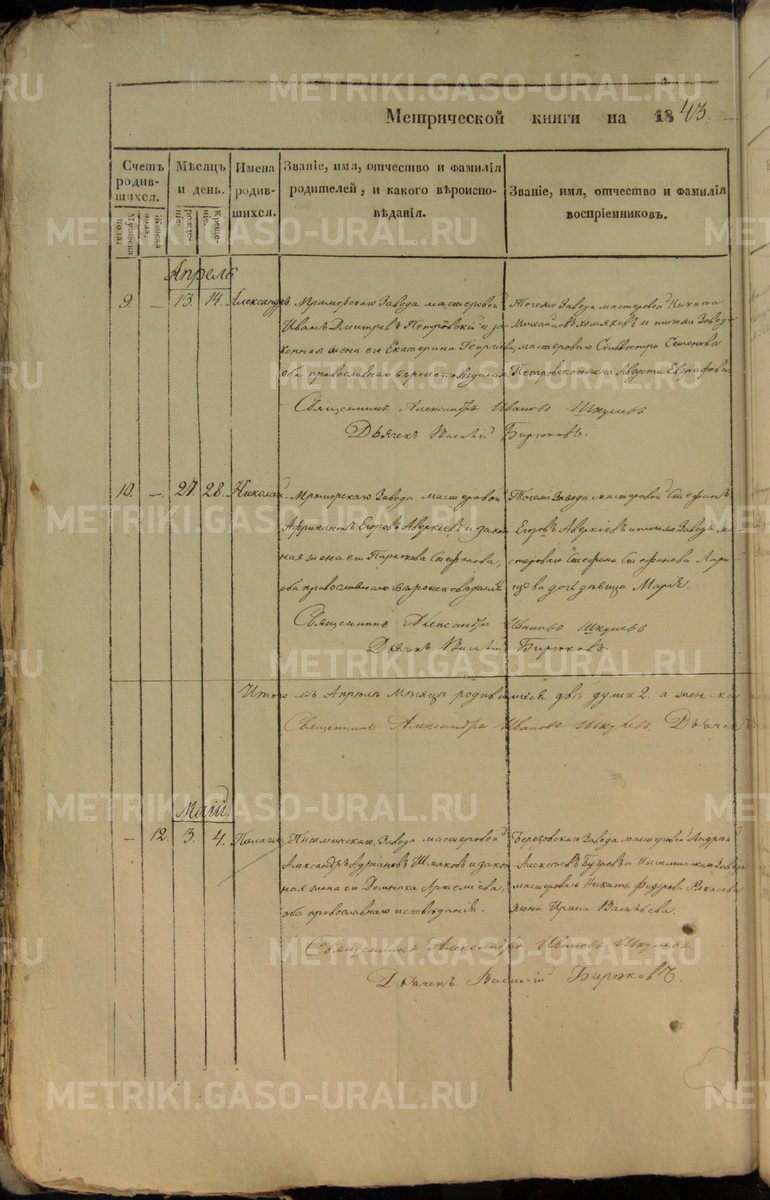 Метрической книги на 1843.
Счетъ родившихся.
Мѣсяцъ и день.
Имена родившихся.
Званіе, имя, отчество и фамилія родителей, и какого вѣроисповѣданія.
Званіе, имя, отчество и фамилія воспріемниковъ.
Мужеска пола.
Женска пола.
Рожденіе.
Крещеніе.
Апрель
9. — 13. 14. Александръ.
Мраморскаго Завода мастеровой
Иванъ Дмитревъ Петровскій и за
конная жена его Екатерина Георгіева,
оба православнаго вѣроисповѣданія.
Тогоже Завода мастеровой Никита
Михайловъ Хомяковъ и тогоже Завода
мастероваго Силвестра Семенова
Петровскаго жена Евграфова.
Священникъ Александръ Ивановъ Шкулевъ
Дьячекъ Василій Бирюковъ.
10. — 27. 28. Николай.
Мраморскаго Завода мастеровой
Африкантъ Егоровъ Аверкіевъ и закон
ная жена его Параскева Стефанова,
оба православнаго вѣроисповѣданія
Тогоже Завода мастеровой Стефанъ
Егоровъ Аверкіевъ и тогоже Завода ма
стероваго Стефана Стефанова
дочь дѣвица Марія.
Священникъ Александръ Ивановъ Шкулевъ
Дьячекъ Василій Бирюковъ.
Итого въ Апрелѣ мѣсяцѣ родившихся двѣ души 2. а женска
Священникъ Александръ Ивановъ Шкулевъ. Дьячекъ
Маій
— 12 3. 4. Палагія.
Завода мастеровой
Александръ Адріановъ Шмаковъ и закон
ная жена его Домника Артеміева,
оба православнаго исповѣданія.
Березовскаго Завода мастеровой Андрей
Алексѣевъ и Завода
мастероваго Никиты Федорова
жена Ирина Васильева.
Священникъ Александръ Ивановъ Шкулевъ
Дьячекъ Василій Бирюковъ.
METRIKI.GASO-URAL.RU